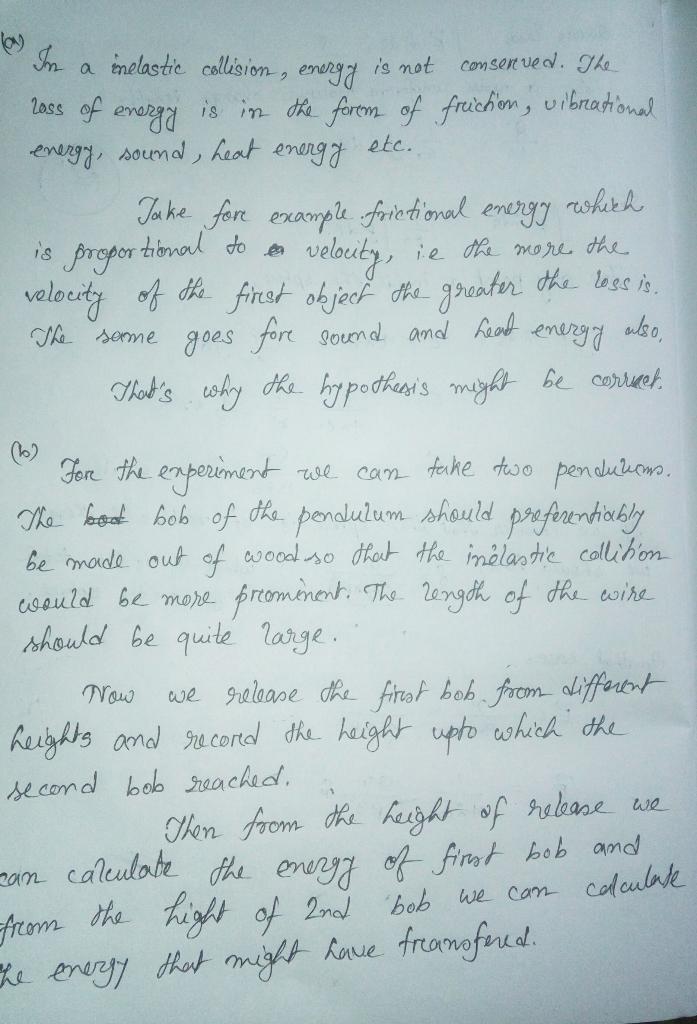 (a)
In a inelastic collision, energy is not conserved. The
loss of energy is in the form of friction, vibrational
energy, sound, heat energy etc.
Take for example frictional energy which
is proportional to velocity, i.e the more the
velocity of the first object the greater the loss is.
The same goes for sound and heat energy also.
That's why the hypothesis might be correct.
(b)
For the experiment we can take two pendulums.
The bob of the pendulum should preferentiably
be made out of wood so that the inelastic collition
would be more prominent. The length of the wire
should be quite large.
Now we release the first bob from different
heights and record the height upto which the
second bob reached.
Then from the height of release we
can calculate the energy of first bob and
from the hight of 2nd bob we can calculate
the energy that might have transfered.